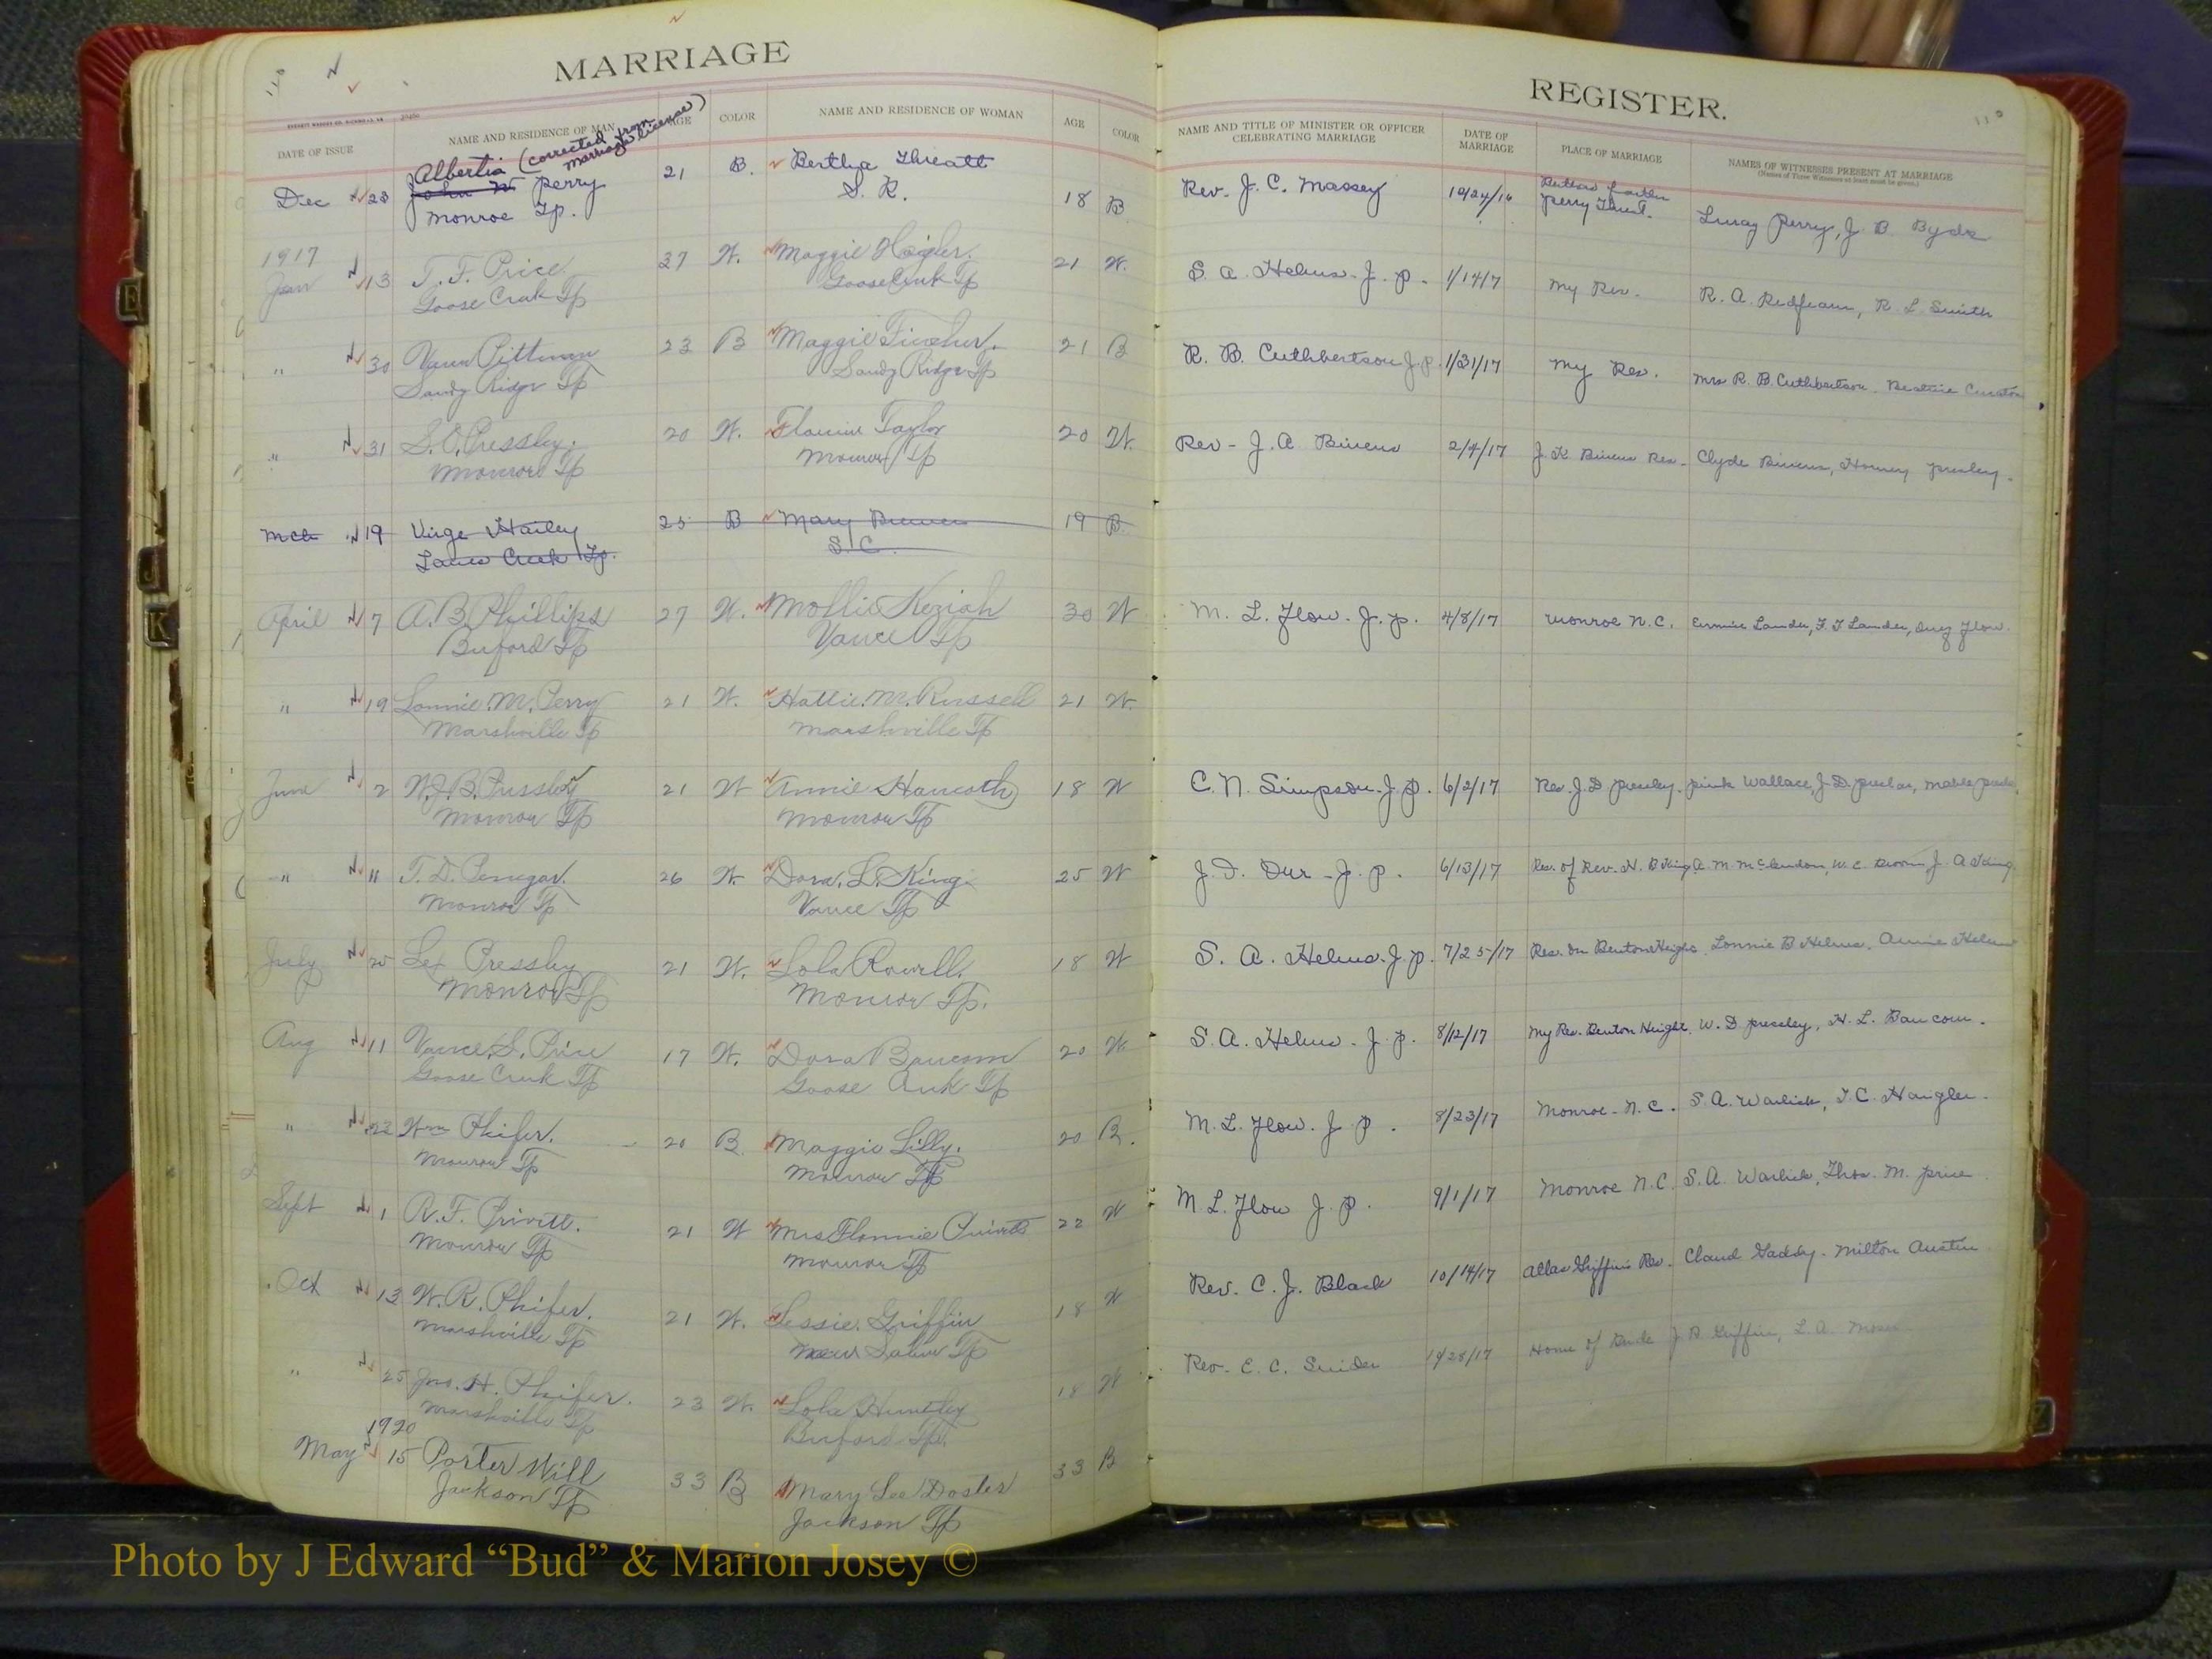 MARRIAGE
REGISTER.
110
DATE OF ISSUE
NAME AND RESIDENCE OF MAN
AGE
COLOR
NAME AND RESIDENCE OF WOMAN
AGE
COLOR
NAME AND TITLE OF MINISTER OR OFFICER
CELEBRATING MARRIAGE
DATE OF
MARRIAGE
PLACE OF MARRIAGE
NAMES OF WITNESSES PRESENT AT MARRIAGE
(Names of Three Witnesses at least must be given.)
Albertia (corrected from
marriage license)
Dec 23 John W Perry 21 B. Bertha Threatt 18 B Rev. J. C. Massey
Monroe Tp. S. R. Perry J. B.
1917
Jan 13 T. F. Price 27 W. Maggie Haigler. 21 W. S. A. Helms. J. P. 1/14/7 my Res. R. A. Redfearn, R. L. Smith
Goose Creek Tp Goose Creek Tp
" 30 Pittman 23 B Maggie Fincher. 21 B R. B. Cuthbertson J. P. 1/31/17 my Res. Mrs R. B. Cuthbertson.
Sandy Ridge Tp Sandy Ridge Tp
" 31 S. C. Pressley. 20 W. Taylor 20 W. Rev - J. A. Bivens 2/4/17 J. K. Bivens Res - Clyde Bivens,
Monroe Tp Monroe Tp
Mch 19 Virge Hailey 25 B Mary 19 B.
Lanes Creek Tp. S. C.
April 7 A. B. Phillips 27 W. Mollie Keziah 30 W M. L. Flow. J. P. 4/8/17 Monroe N. C. Lander, Flow.
Buford Tp Vance Tp
" 19 Lonnie M. Perry 21 W. Hattie M. Russell 21 W.
Marshville Tp Marshville Tp
June 2 W. J. B. Pressley 21 W Annie 18 W C. N. Simpson J. P. 6/2/17 Res. J. D. Wallace, J. D.
Monroe Tp Monroe Tp
" 11 T. D. Penegar. 26 W. Dora L. King 25 W J. P. 6/13/17 Res. of Rev. H. B King A. M. McLendon, W. C. J. A King
Monroe Tp Vance Tp
July 25 Lex Pressley 21 W. Lola Rowell. 18 W S. A. Helms. J. P. 7/25/17 Res. on Benton Heights Lonnie B Helms. Annie Helms
Monroe Tp Monroe Tp.
Aug 11 Vance S. Price 17 W. Dora Baucom 20 W. S. A. Helms. J. P. 8/12/17 My Res. Benton Height. W. D. Pressley, H. L. Baucom.
Goose Creek Tp Goose Creek Tp
" 22 Wm Phifer. 20 B Maggie Lilly. 20 B. M. L. Flow. J. P. 8/23/17 Monroe - N. C. S. A. Warlick, T. C. Haigler.
Monroe Tp Monroe Tp
Sept 1 R. F. Privett. 21 W Mrs Flonnie Privett 22 W M. L. Flow J. P. 9/1/17 Monroe N. C. S. A. Warlick, Thos. M. Price
Monroe Tp Monroe Tp
Oct 13 W. R. Phifer. 21 W. Lessie Griffin 18 W Rev. C. J. Black 10/14/17 Griffins Res. Claud Gaddy. Milton Austin
Marshville Tp New Salem Tp
" 25 Jno. H. Phifer. 23 W. Lola Huntley 18 W Rev. E. C. Snider Home of Bride Griffin, L. A. Moser
Marshville Tp Buford Tp.
1920
May 15 Porter Will 33 B Mary Lee Doster 33 B
Jackson Tp Jackson Tp
E
J
K
Photo by J Edward “Bud” & Marion Josey ©